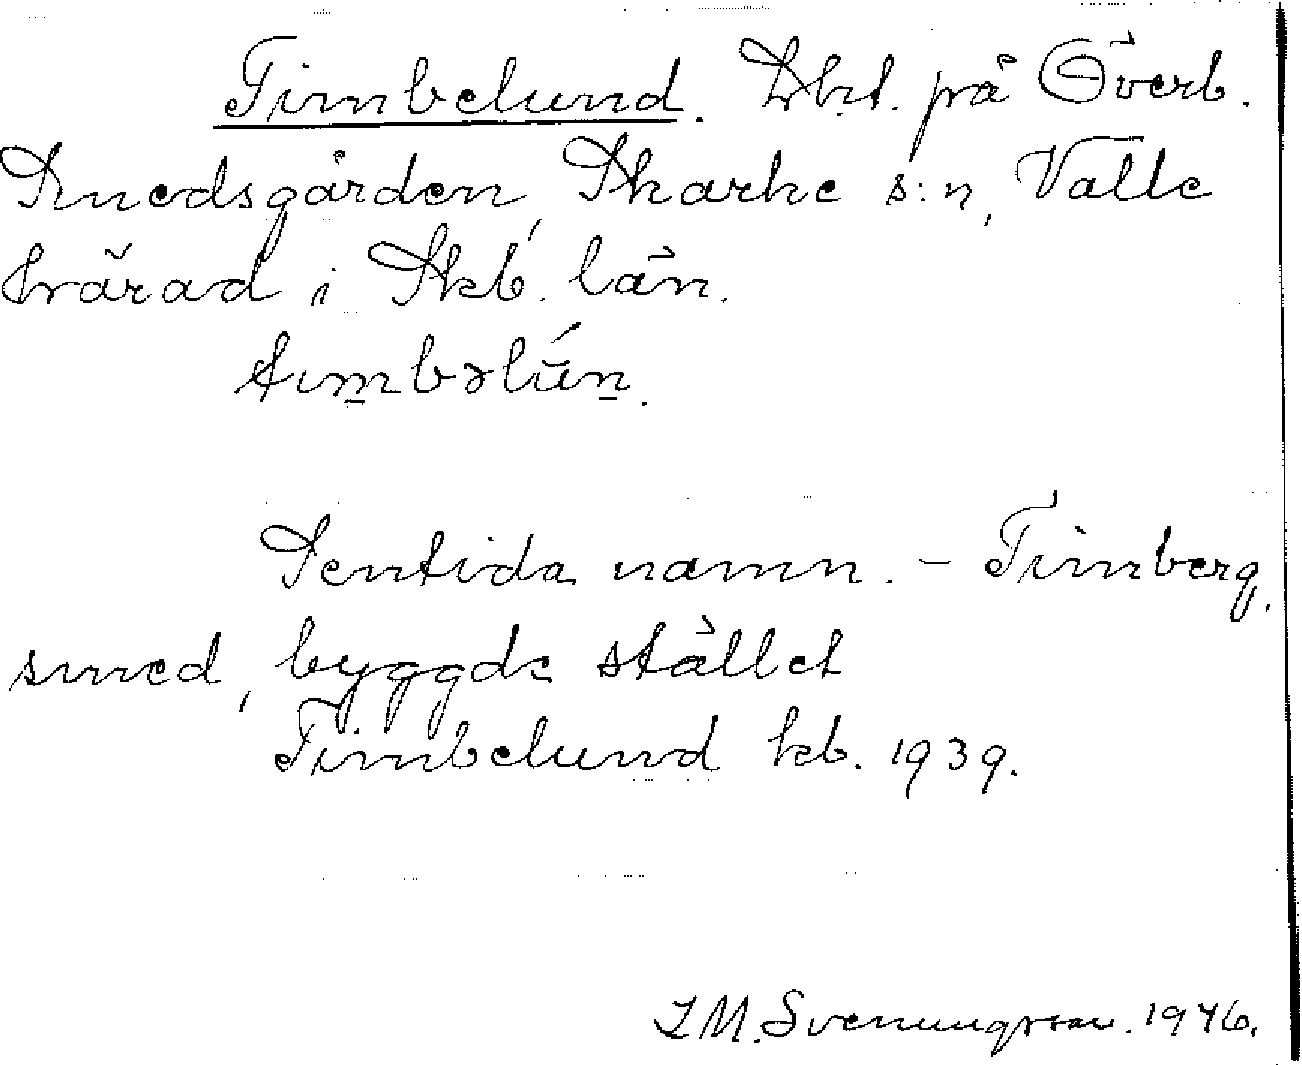 Timbelund. Lht. på Överb.
Smedsgården, Skarke s:n, Valle
härad i Skb. län.
timbəlún.
Sentida namn. – Timberg,
smed, byggde stället
Timbelund kb. 1939.
I M. Svenungsson. 1946.